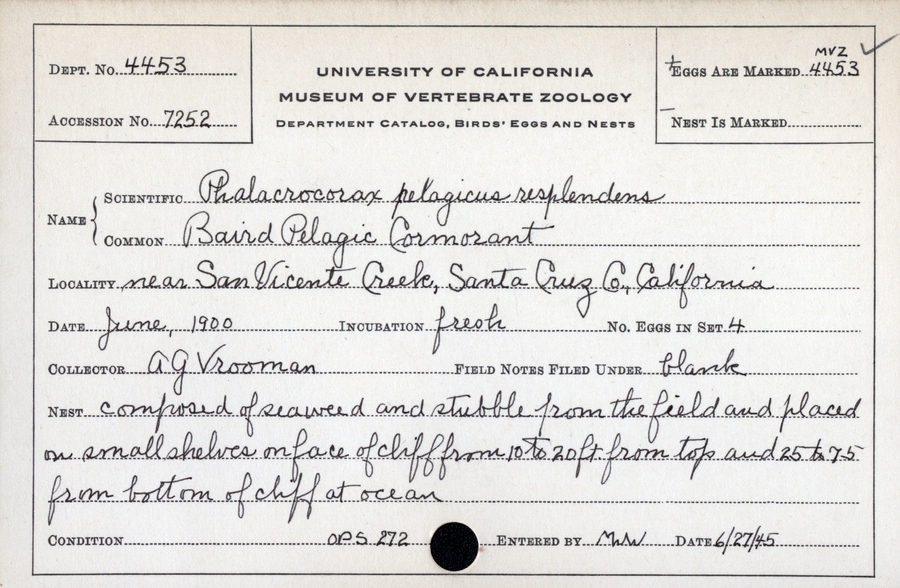 DEPT. NO. 4453
ACCESSION NO. 7252
UNIVERSITY OF CALIFORNIA
MUSEUM OF VERTEBRATE ZOOLOGY
DEPARTMENT CATALOG, BIRDS' EGGS AND NESTS
MVZ
+ EGGS ARE MARKED 4453 ✓
– NEST IS MARKED
NAME { SCIENTIFIC Phalacrocorax pelagicus resplendens
COMMON Baird Pelagic Cormorant
LOCALITY near San Vicente Creek, Santa Cruz Co., California
DATE June, 1900 INCUBATION fresh NO. EGGS IN SET 4
COLLECTOR A G Vrooman FIELD NOTES FILED UNDER blank
NEST composed of seaweed and stubble from the field and placed
on small shelves on face of cliff from 10 to 20 ft from top and 25 to 75
from bottom of cliff at ocean
CONDITION OPS 272 ENTERED BY DATE 6/27/45